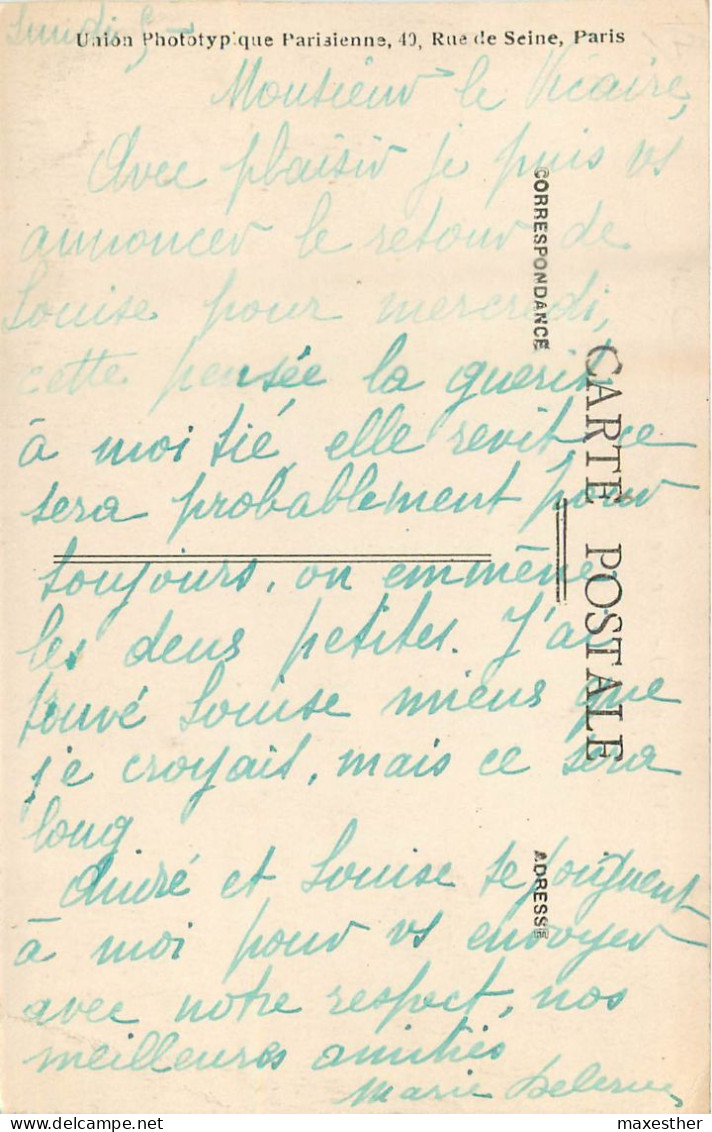 Lundi 5
Union Phototypique Parisienne, 40, Rue de Seine, Paris
Monsieur le Vicaire,
Avec plaisir je puis vs
annoncer le retour de
Louise pour mercredi,
cette pensée la guerit
à moitié, elle revit ce
sera probablement pour
toujours, on emmène
les deus petites. J'ai
trouvé Louise mieus que
je croyait, mais ce sera
long
André et Louise se joignent
à moi pour vs envoyer
avec notre respect, nos
meilleures amitiés
Marie
CORRESPONDANCE
CARTE POSTALE
ADRESSE
maxesther